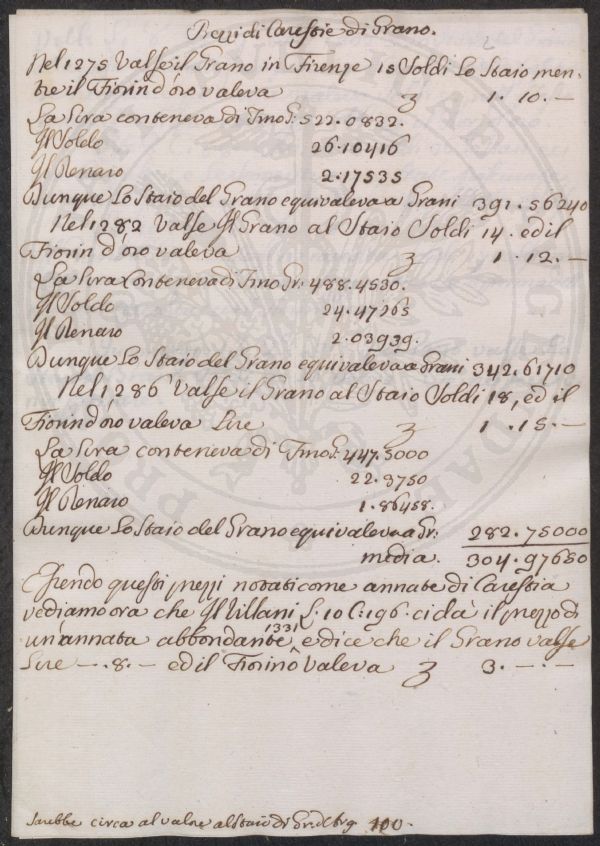 Prezzi di Carestie di Grano.
Nel 1275 Valse il Grano in Firenze 15 Soldi Lo Staio men-
tre il Fiorin d'oro valeva 1. 10. —
La Lira conteneva di Fino G: 522.0832.
Il Soldo 26.10416
Il Denaro 2.17535
Dunque Lo Staio del Grano equivaleva a Grani 391.56240
Nel 1282 Valse Il Grano al Staio Soldi 14. ed il
Fiorin d'oro valeva 1. 12. —
La Lira Conteneva di Fino Gr: 488.4530.
Il Soldo 24.47265
Il Denaro 2.03939.
Dunque Lo Staio del Grano equivaleva a Grani 342.61710
Nel 1286 Valse il Grano al Staio Soldi 18, ed il
Fiorin d'oro valeva Lire 1. 15. —
La Lira conteneva di Fino G: 447.5000
Il Soldo 22.3750
Il Denaro 1.86458.
Dunque Lo Staio del Grano equivaleva a Gr: 282.75000
media. 304.97650
Essendo questi prezzi notati come annate di Carestia
vediamo ora che Il Villani L. 10 C: 196. ci dà il prezzo di
un'annata abbondante, 1331 e dice che il Grano valse
Lire — .8. — ed il Fiorino Valeva 3. — . —
Sarebbe circa al valore al Staio di Gr: 100.